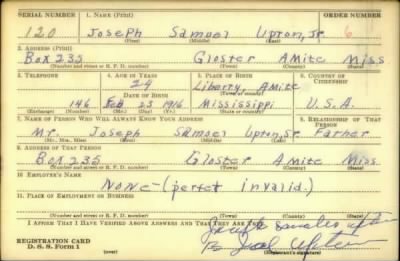 SERIAL NUMBER 1. NAME (Print) ORDER NUMBER
120 Joseph Samuel Upton, Jr. 6
(First) (Middle) (Last)
2. ADDRESS (Print)
Box 235 Gloster Amite Miss
(Number and street or R. F. D. number) (Town) (County) (State)
3. TELEPHONE 4. AGE IN YEARS 5. PLACE OF BIRTH 6. COUNTRY OF CITIZENSHIP
24 Liberty, Amite
DATE OF BIRTH (Town) (County)
146 Feb 23 1916 Mississippi U.S.A.
(Exchange) (Number) (Mo.) (Day) (Yr.) (State or country)
7. NAME OF PERSON WHO WILL ALWAYS KNOW YOUR ADDRESS 8. RELATIONSHIP OF THAT PERSON
Mr. Joseph Samuel Upton, Sr. Father
(Mr., Mrs., Miss) (First) (Middle) (Last)
9. ADDRESS OF THAT PERSON
Box 235 Gloster Amite Miss.
(Number and street or R. F. D. number) (Town) (County) (State)
10. EMPLOYER'S NAME
None - (perfect invalid.)
11. PLACE OF EMPLOYMENT OR BUSINESS
(Number and street or R. F. D. number) (Town) (County) (State)
I AFFIRM THAT I HAVE VERIFIED ABOVE ANSWERS AND THAT THEY ARE TRUE.
REGISTRATION CARD
D. S. S. Form 1 (over) (Registrant's signature)